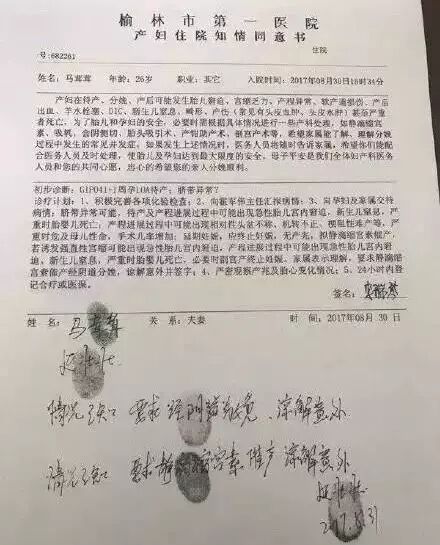 榆林市第一医院
产妇住院知情同意书
住院
号:682261
姓名：马茸茸 年龄：26岁 职业：其它 入院时间：2017年08月30日16时34分
产妇在待产、分娩、产后可能发生胎儿窘迫、宫缩乏力、产程异常、软产道损伤、产后
出血、羊水栓塞、DIC、新生儿窒息、畸形、产伤(常见有头皮血肿、头皮水肿)甚至严重
者死亡，为了胎儿和孕妇的安全，必要时需根据具体情况进行一些产科处理，如静滴缩宫
素、吸氧，会阴侧切，胎头吸引术、产钳助产术、剖宫产术等，希望家属能了解、理解分娩
过程中发生的常见并发症。如果发生上述情况时，医务人员将随时告诉家属，希望你们能配
合医务人员及时处理，使胎儿及孕妇达到最大限度的安全。母子平安是我们全体妇产科医务
人员和您的共同心愿，衷心的希望您的亲人分娩顺利。
初步诊断：G1P041+1周孕LOA待产；脐带异常？
诊疗计划：1、积极完善各项化验检查；2、向霍军伟主任汇报病情；3、向孕妇及家属交待
病情：脐带异常可能，待产及产程进展过程中可能出现急性胎儿宫内窘迫，新生儿窒息，严
重时胎婴儿死亡，产程进展过程中可能出现相对性头盆不称，机转不正、梗阻性难产等，严
重时危及母儿性命，手术儿率增加；延期妊娠，应终止妊娠，无产兆，拟静滴缩宫素催产，
若诱发强直性宫缩可能出现急性胎儿宫内窘迫，产程进展过程中可能出现急性胎儿宫内窘
迫，新生儿窒息，严重时胎婴儿死亡，必要时剖宫产终止妊娠，家属表示理解，要求静滴缩
宫素催产经阴道分娩，谅解意外并签字；4、严密观察产兆及胎心变化情况；5、24小时内登
记合疗或医保。
签名：
姓名：马茸茸 关系：夫妻 时间：2017年08月30日
延壮壮
情况已知 要求经阴 谅解意外
情况已知 要求静 缩宫素催产 谅解意外
延壮壮
2017.8.31